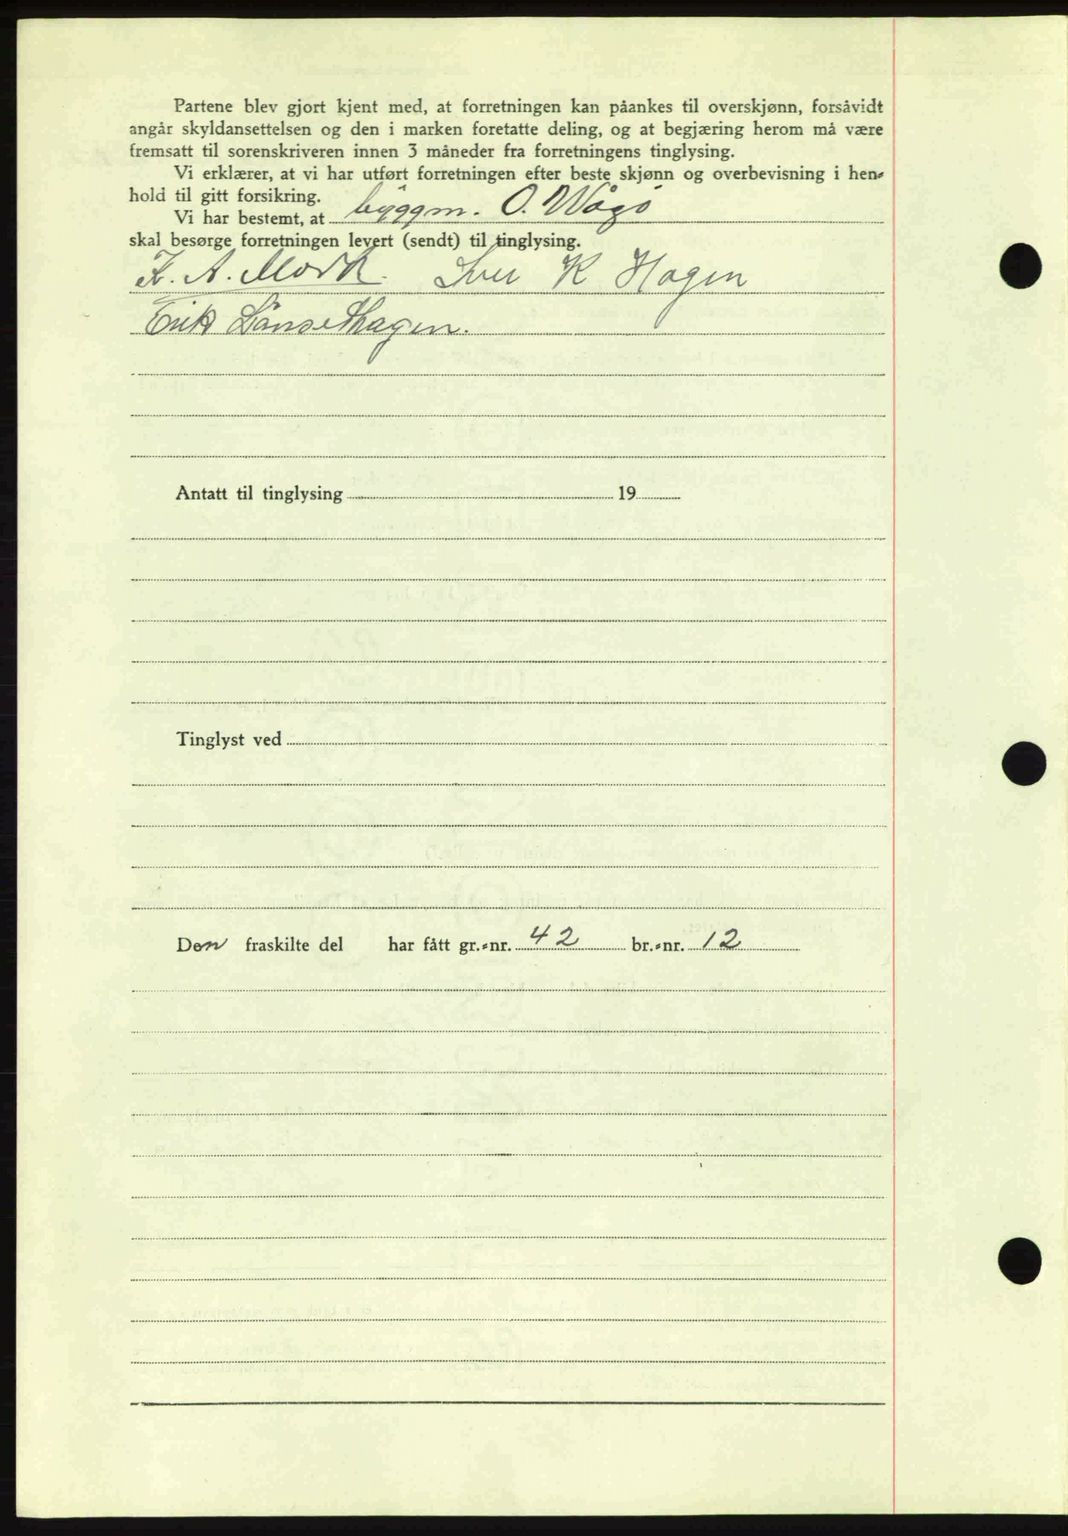 Partene blev gjort kjent med, at forretningen kan påankes til overskjønn, forsåvidt
angår skyldansettelsen og den i marken foretatte deling, og at begjæring herom må være
fremsatt til sorenskriveren innen 3 måneder fra forretningens tinglysing.
Vi erklærer, at vi har utført forretningen efter beste skjønn og overbevisning i hen-
hold til gitt forsikring.
Vi har bestemt, at byggm. O. Vågø
skal besørge forretningen levert (sendt) til tinglysing.
K. A. Mork. Iver K Hagen
Erik Lånsethagen.
Antatt til tinglysing 19
Tinglyst ved
Den fraskilte del har fått gr.-nr. 42 br.-nr. 12